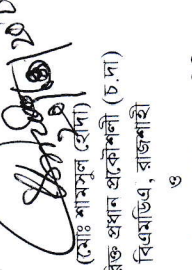 (মোঃ শামসুল হোদা)
রিক্ত প্রধান প্রকৌশলী (চ.দা)
বিএমডিএ, রাজশাহী
ও